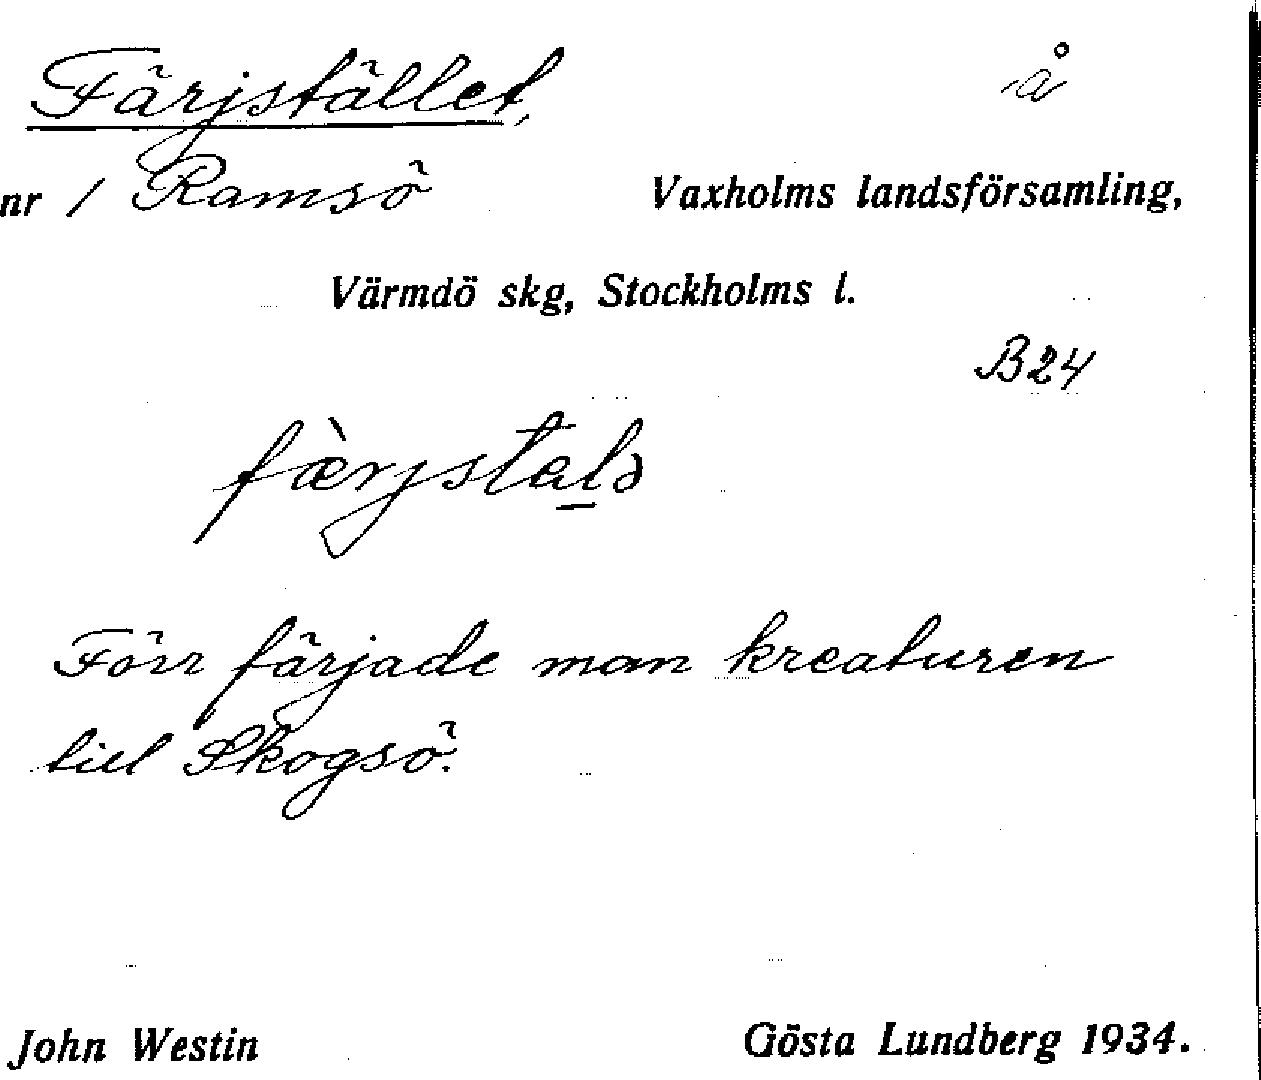 Färjstället, å
nr 1 Ramsö Vaxholms landsförsamling,
Värmdö skg, Stockholms l.
B24
fæ̀rjstalə
Förr färjade man kreaturen
till Skogsö.
John Westin Gösta Lundberg 1934.